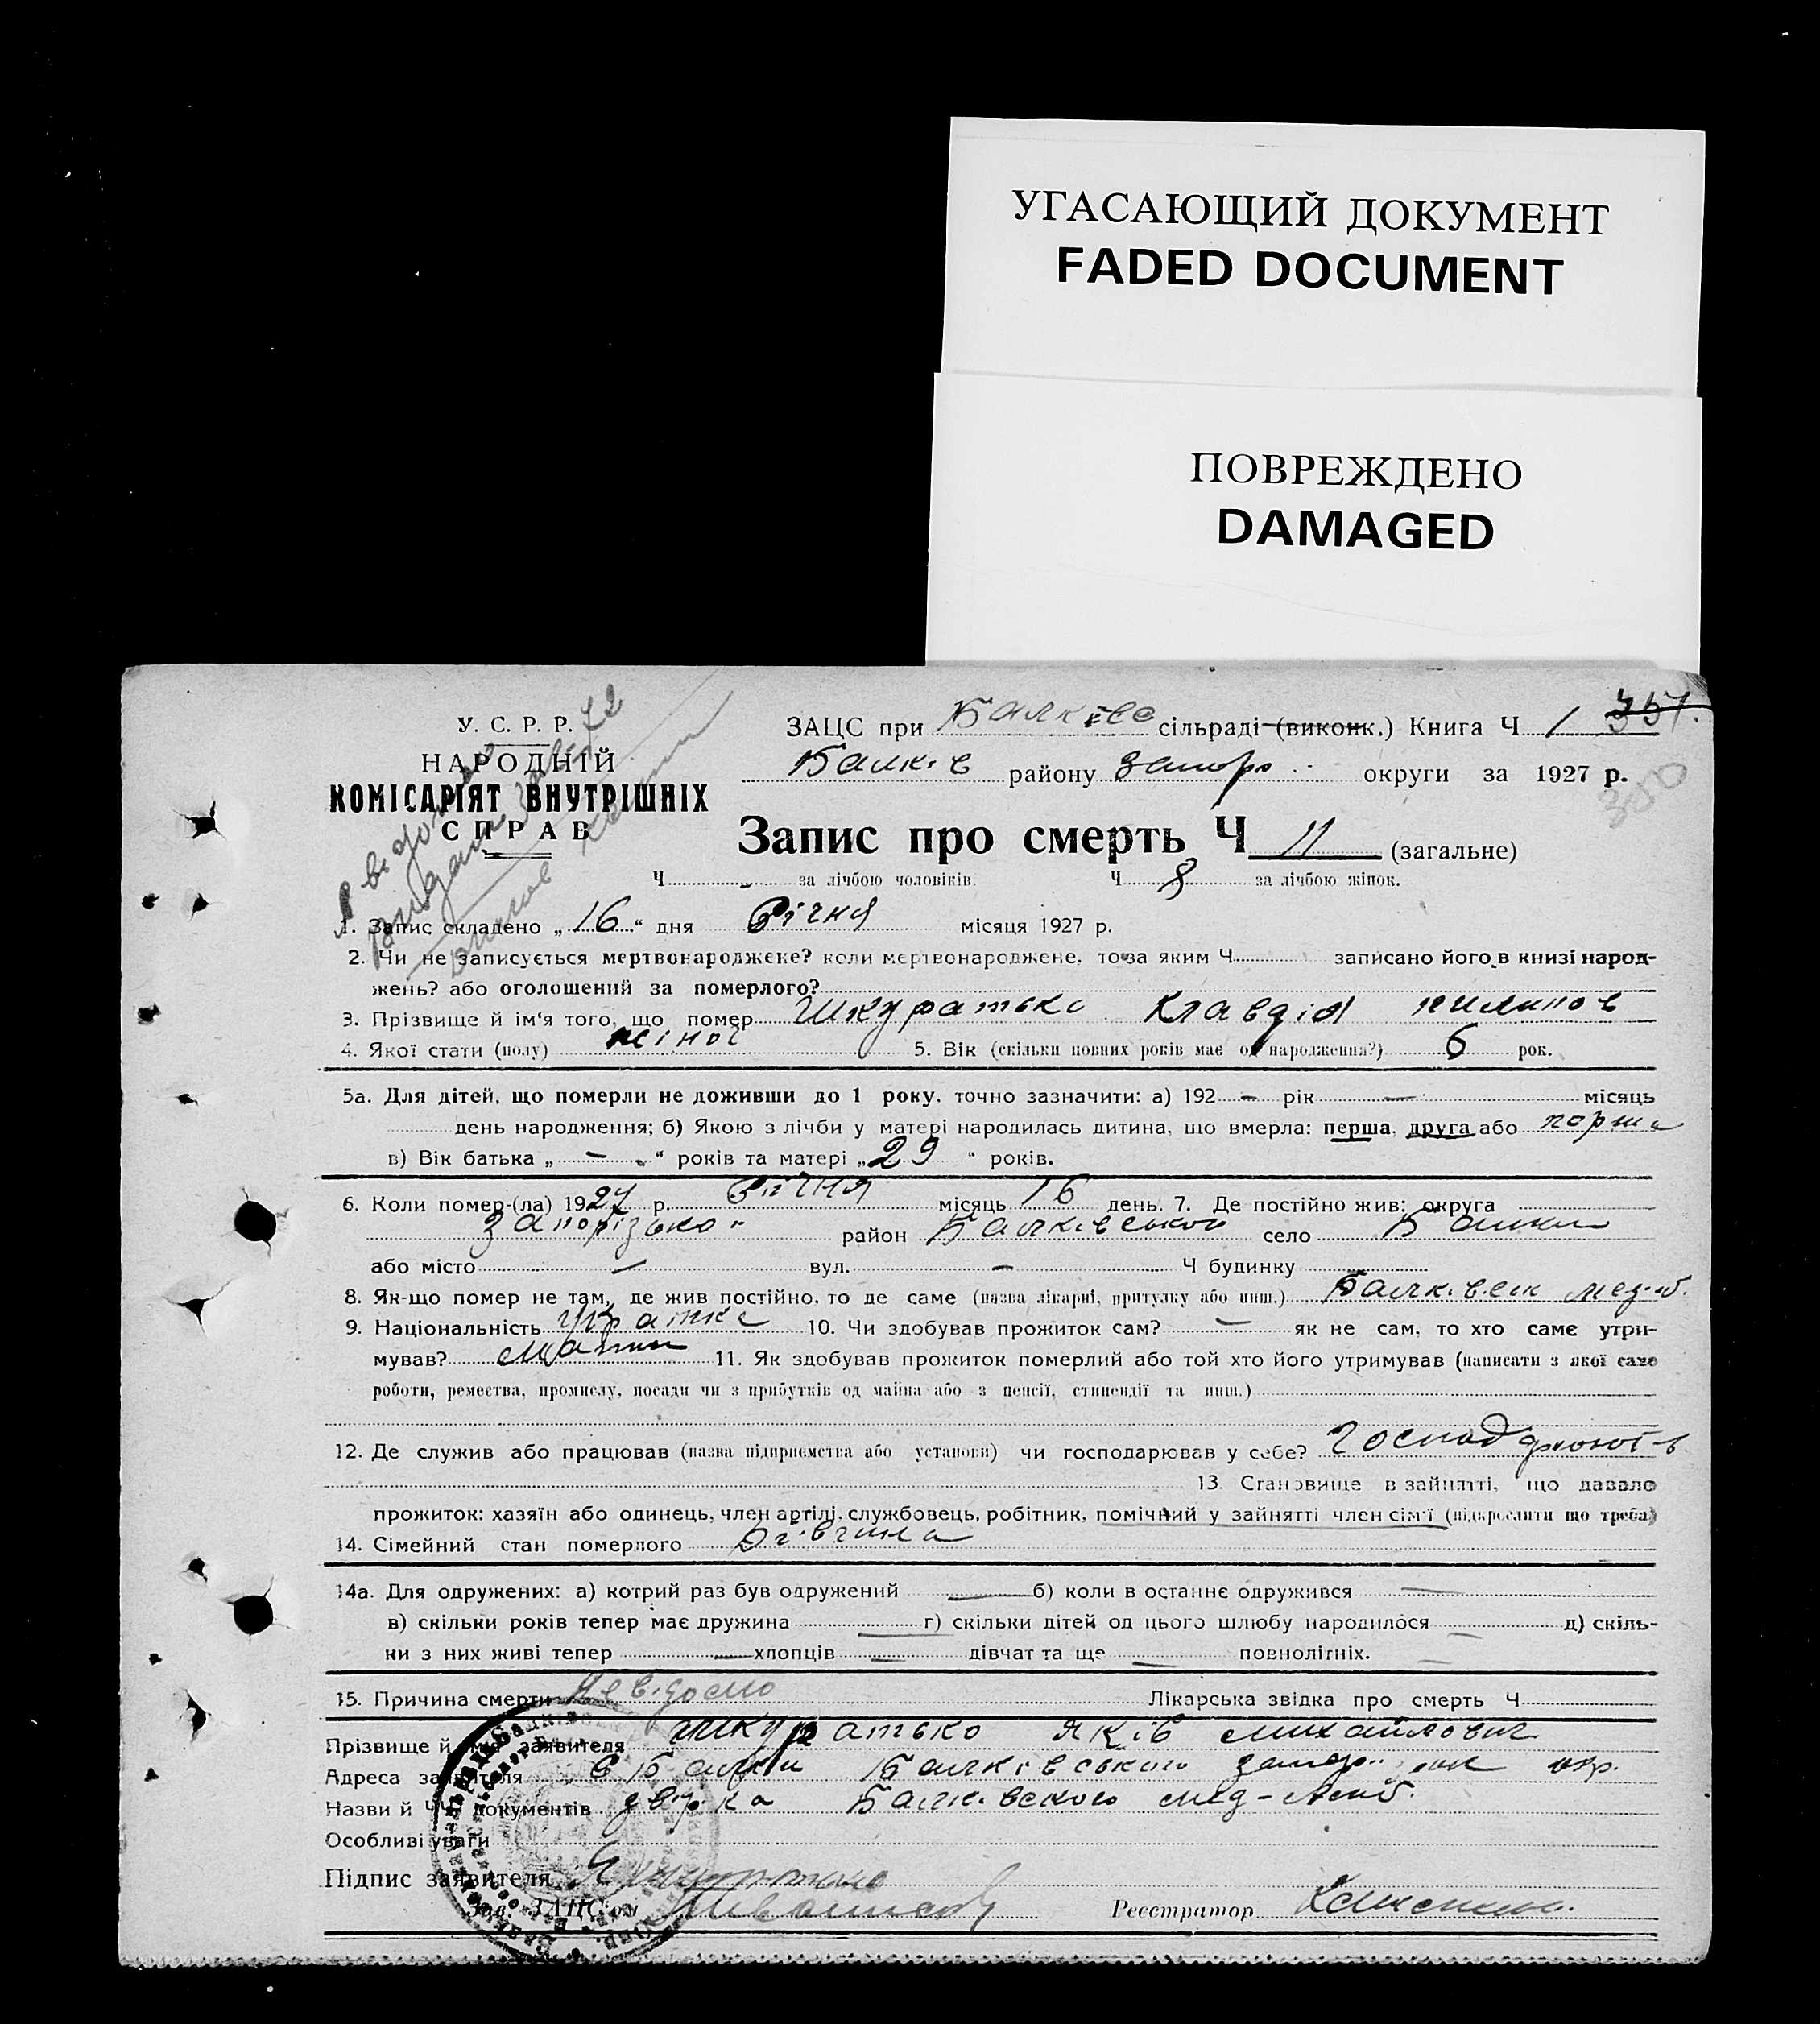 УГАСАЮЩИЙ ДОКУМЕНТ
FADED DOCUMENT
ПОВРЕЖДЕНО
DAMAGED
У. С. Р. Р.
НАРОДНІЙ
КОМІСАРІЯТ ВНУТРІШНІХ
СПРАВ
ЗАЦС при Балків сільраді (виконк.) Книга Ч 1 351.
Балків району Запорз округи за 1927 р.
350
Запис про смерть Ч 11 (загальне)
Ч - за лічбою чоловіків. Ч 8 за лічбою жінок.
1. Запис складено „ 16 “ дня Січня місяця 1927 р.
2. Чи не записується мертвонароджене? коли мертвонароджене, то за яким Ч записано його в книзі народ-
жень? або оголошений за померлого?
3. Прізвище й ім'я того, що помер Шкуратько Клавдія пилипов
4. Якої стати (полу) жіноч 5. Вік (скільки повних років має од народження?) 6 рок.
5а. Для дітей, що померли не доживши до 1 року, точно зазначити: а) 192 – рік – місяць
день народження; б) Якою з лічби у матері народилась дитина, що вмерла: перша, друга або
в) Вік батька „ – “ років та матері „ 29 “ років.
6. Коли помер-(ла) 1927 р. Січня місяць 16 день. 7. Де постійно жив: округа
Запорізької район Балківського село Балки
або місто – вул. – Ч будинку
8. Як-що помер не там, де жив постійно, то де саме (назва лікарні, притулку або инш.)
9. Національність Українка 10. Чи здобував прожиток сам? – як не сам, то хто саме утри-
мував? мати 11. Як здобував прожиток померлий або той хто його утримував (написати з якої саме
роботи, ремества, промислу, посади чи з прибутків од майна або з пенсії, стипендії та инш.)
12. Де служив або працював (назва підприємства або установи) чи господарював у себе?
13. Становище в зайнятті, що давало
прожиток: хазяїн або одинець, член артілі, службовець, робітник, помічний у зайнятті член сім'ї (підкреслити що треба)
14. Сімейний стан померлого Дівчина
14а. Для одружених: а) котрий раз був одружений — б) коли в останнє одружився —
в) скільки років тепер має дружина — г) скільки дітей од цього шлюбу народилося — д) скіль-
ки з них живі тепер — хлопців — дівчат та ще — повнолітніх.
15. Причина смерти Невідомо Лікарська звідка про смерть Ч
Прізвище й ім'я заявителя Шкуратько Яків Михайлович
Адреса заявителя с Балки Балківського окр.
Назви й ЧЧ документів Балківского
Особливі уваги
Підпис заявителя
Зав. ЗАЦС'ом Реєстратор